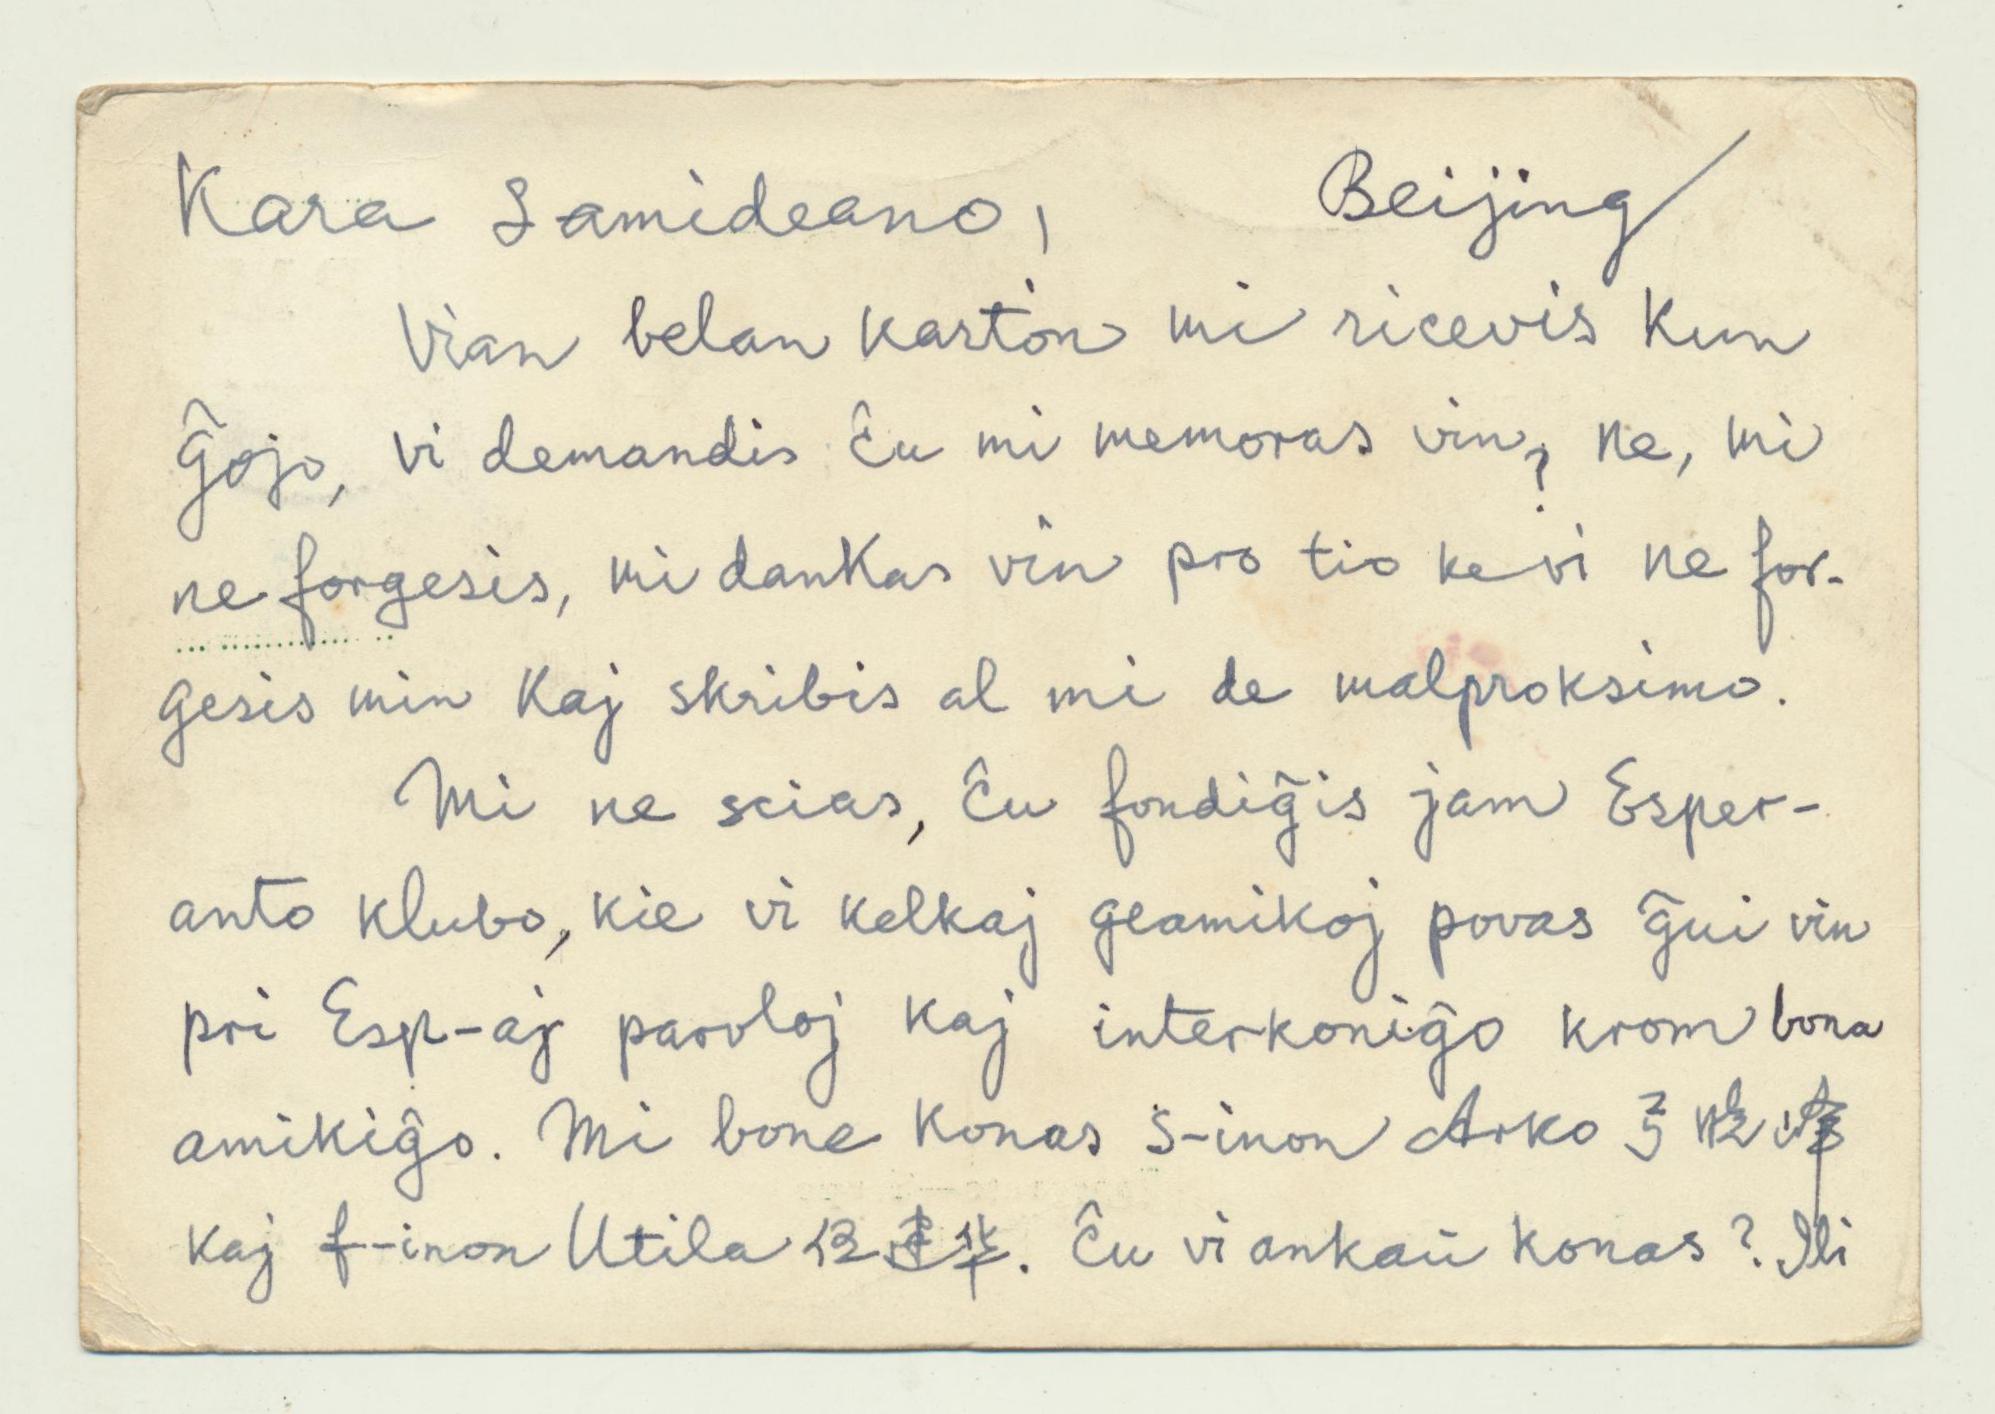 Kara Samideano, Beijing/
Vian belan karton mi ricevis kun
ĝojo, vi demandis ĉu mi memoras vin? ne, mi
ne forgesis, mi dankas vin pro tio ke vi ne for-
gesis min kaj skribis al mi de malproksimo.
Mi ne scias, ĉu fondiĝis jam Esper-
anto klubo, kie vi kelkaj geamikoj povas ĝui vin
pri Esp-aj paroloj kaj interkoniĝo krom bona
amikiĝo. Mi bone konas s-inon Arko
kaj f-inon Utila. Ĉu vi ankaŭ konas? Ili